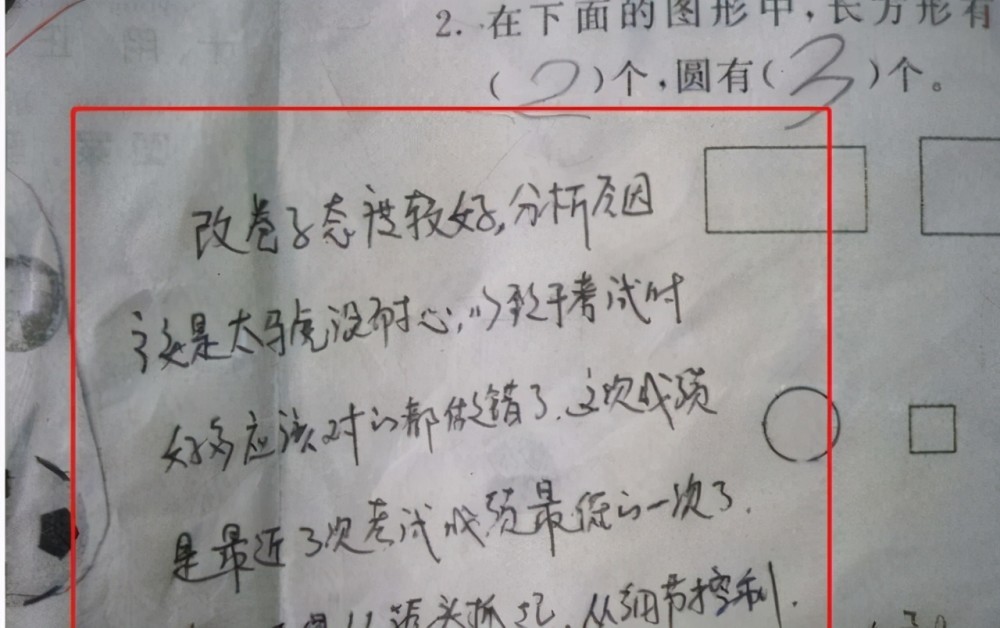 2. 在下面的图形中,长方形有
( 2 )个,圆有( 3 )个。
改卷子态度较好,分析原因
还是太马虎没耐心,以致于考试时
好多应该对的都做错了.这次成绩
是最近3次考试成绩最低的一次了.
头抓起,从细节控制.